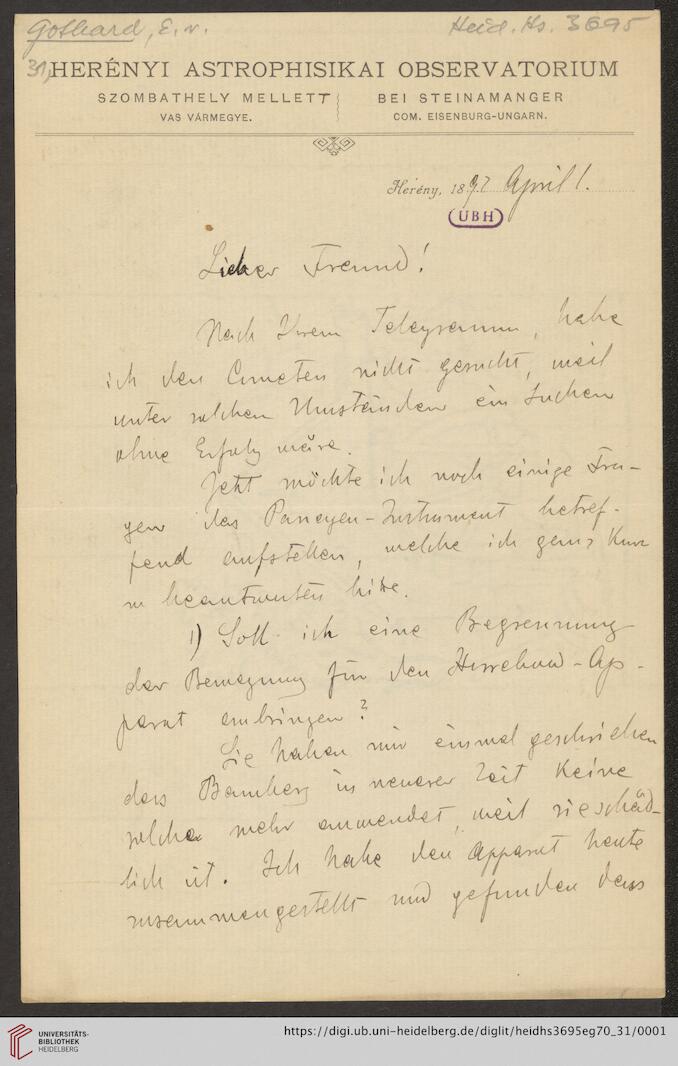 Gothard, E. v.
Heid. Hs. 3695
31,
HERÉNYI ASTROPHISIKAI OBSERVATORIUM
SZOMBATHELY MELLETT
BEI STEINAMANGER
VAS VÁRMEGYE.
COM. EISENBURG-UNGARN.
Herény, 1897 April 1.
UBH
Lieber Freund!
Nach Ihrem Telegramm, habe
ich den Cometen nicht gesucht, weil
unter solchen Umständen ein Suchen
ohne Erfolg wäre.
Jetzt möchte ich noch einige Fra-
gen das Passagen-Instrument betref-
fend aufstellen, welche ich ganz kurz
zu beantworten bitte.
1) Soll ich eine Begrenzung
der Bewegung für den Horrebow-Ap-
parat anbringen?
Sie haben mir einmal geschrieben
dass Bamberg in neuerer Zeit keine
solche mehr anwendet, weil sie schäd-
lich ist. Ich habe den Apparat heute
zusammengestellt und gefunden dass
UNIVERSITÄTS-
BIBLIOTHEK
HEIDELBERG
https://digi.ub.uni-heidelberg.de/diglit/heidhs3695eg70_31/0001